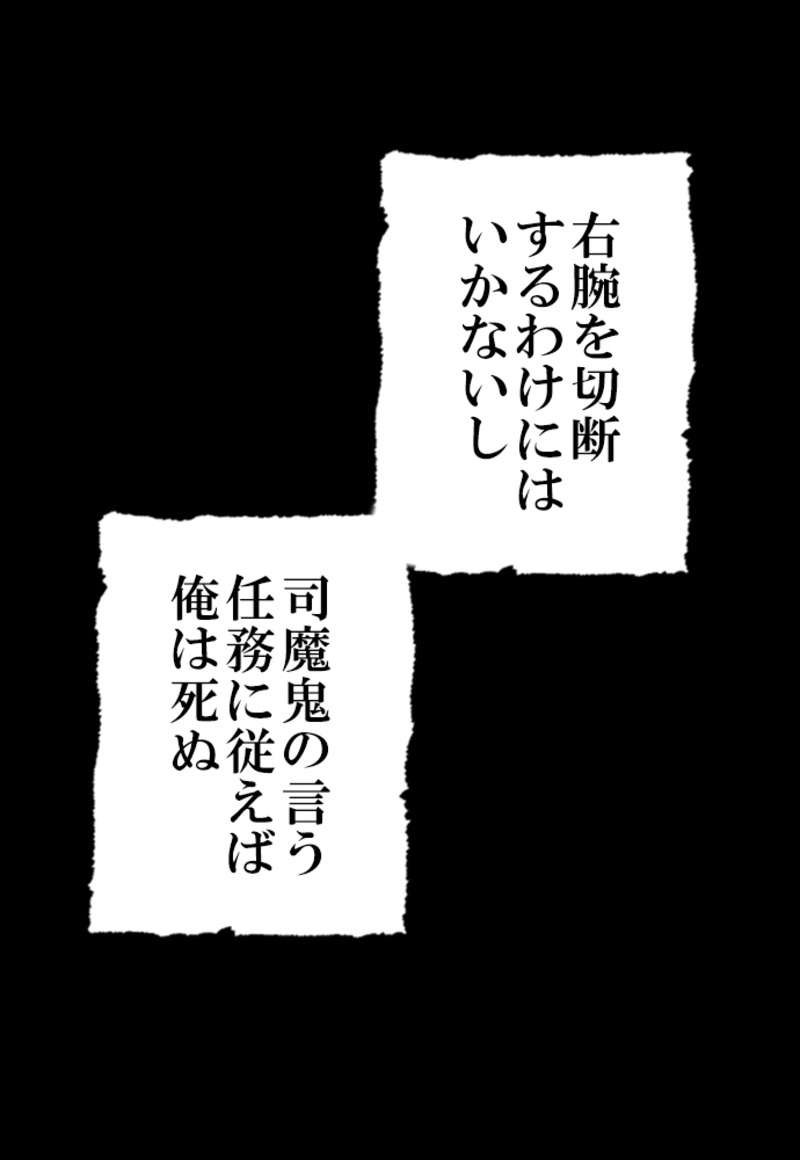 右腕を切断
するわけには
いかないし
司魔鬼の言う
任務に従えば
俺は死ぬ